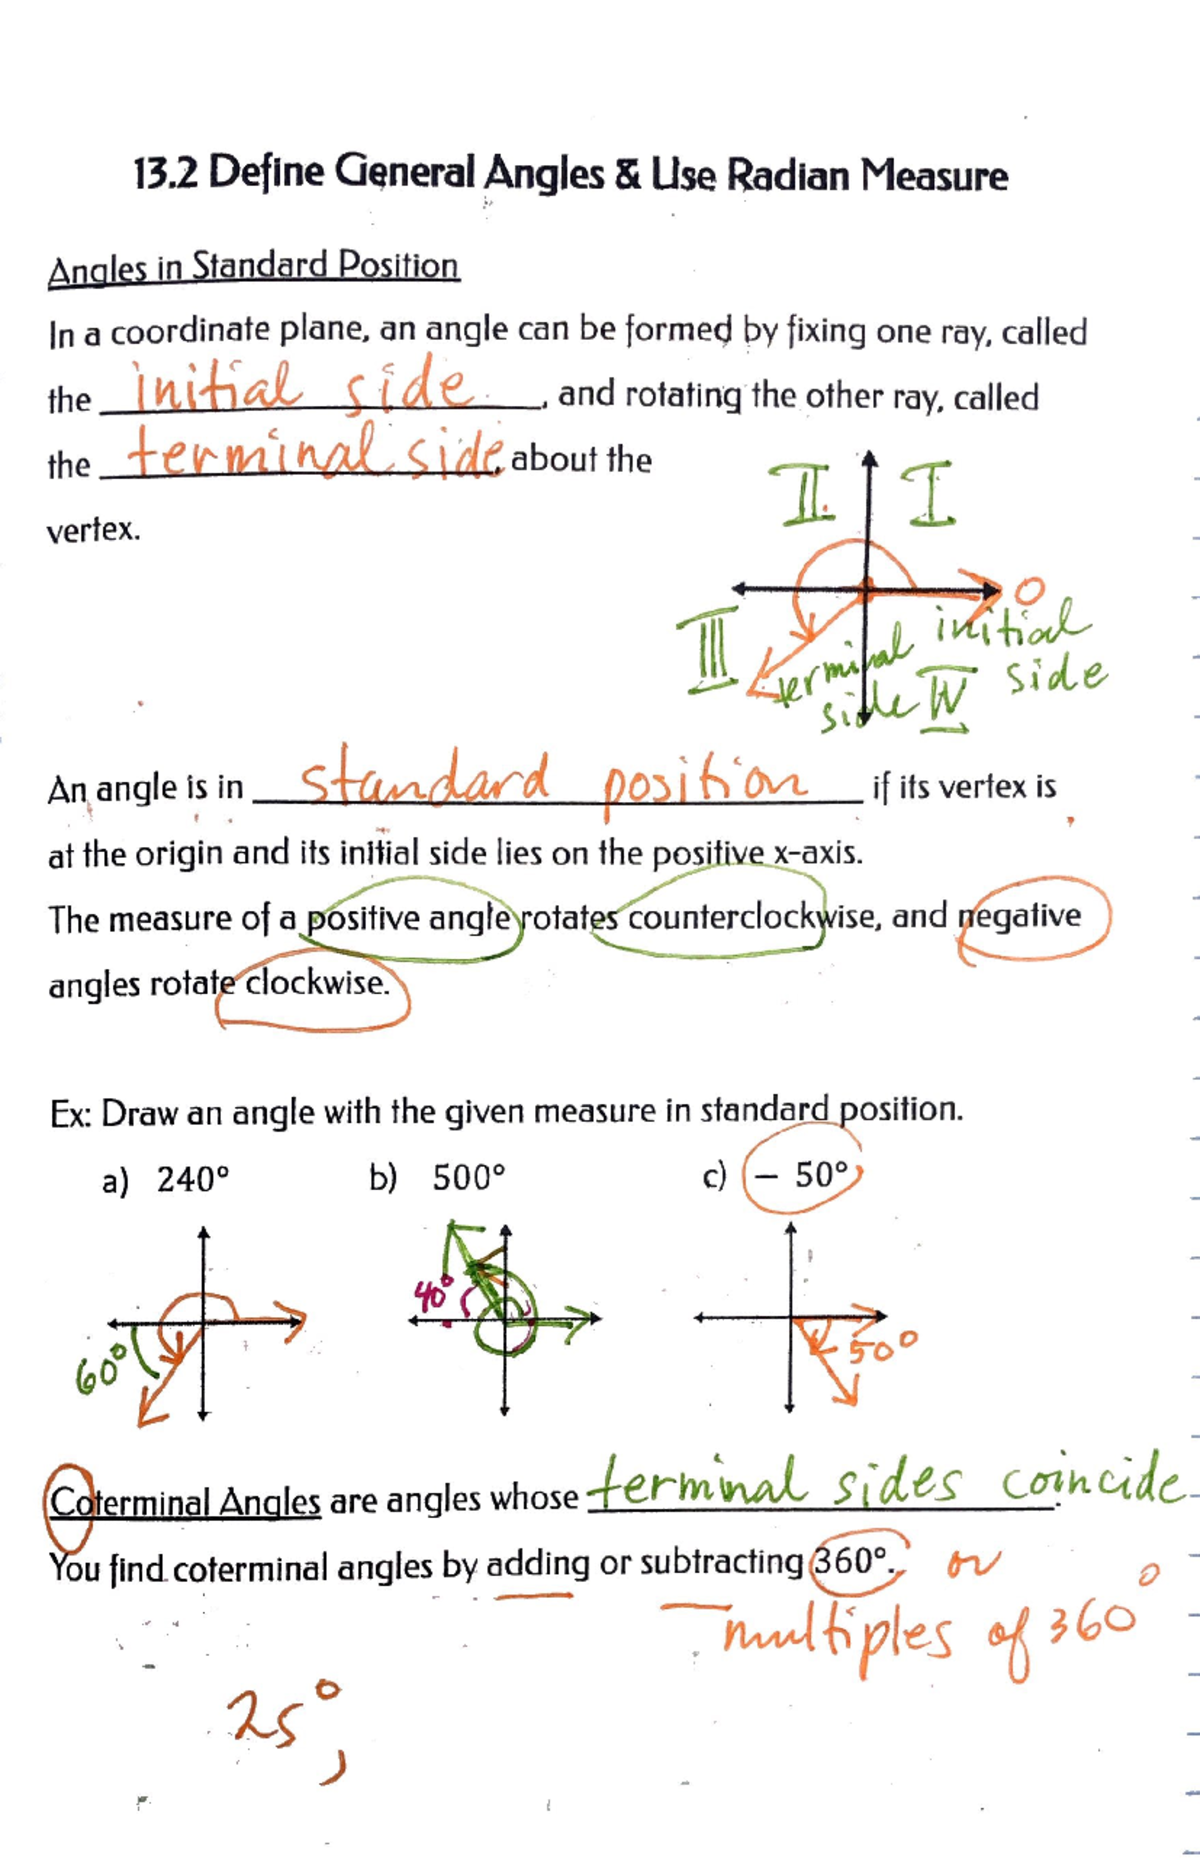 13.2 Define General Angles & Use Radian Measure
Angles in Standard Position
In a coordinate plane, an angle can be formed by fixing one ray, called
the initial side, and rotating the other ray, called
the terminal side, about the
vertex.
II I
0
III terminal initial
side IV side
An angle is in standard position if its vertex is
at the origin and its initial side lies on the positive x-axis.
The measure of a positive angle rotates counterclockwise, and negative
angles rotate clockwise.
Ex: Draw an angle with the given measure in standard position.
a) 240° b) 500° c) – 50°
40°
60° 50°
Coterminal Angles are angles whose terminal sides coincide.
You find coterminal angles by adding or subtracting 360°. or
multiples of 360°
25°,